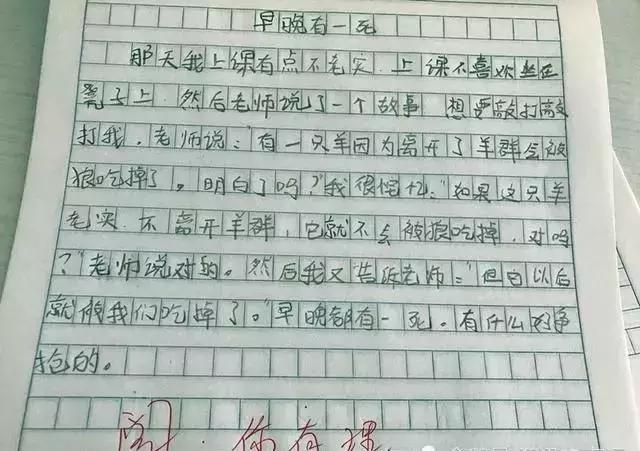 早晚有一死
那天我上课有点不老实.上课不喜欢坐在
凳子上.然后老师说了一个故事 想要敲打敲
打我.老师说:"有一只羊因为离开了羊群会被
狼吃掉了。明白了吗?"我很 "如果这只羊
老实.不离开羊群,它就不会被狼吃掉.对吗
?"老师说对的。然后我又告诉老师:"但它以后
就被我们吃掉了。"早晚都有一死.有什么好争
抢的。
阅.你有理